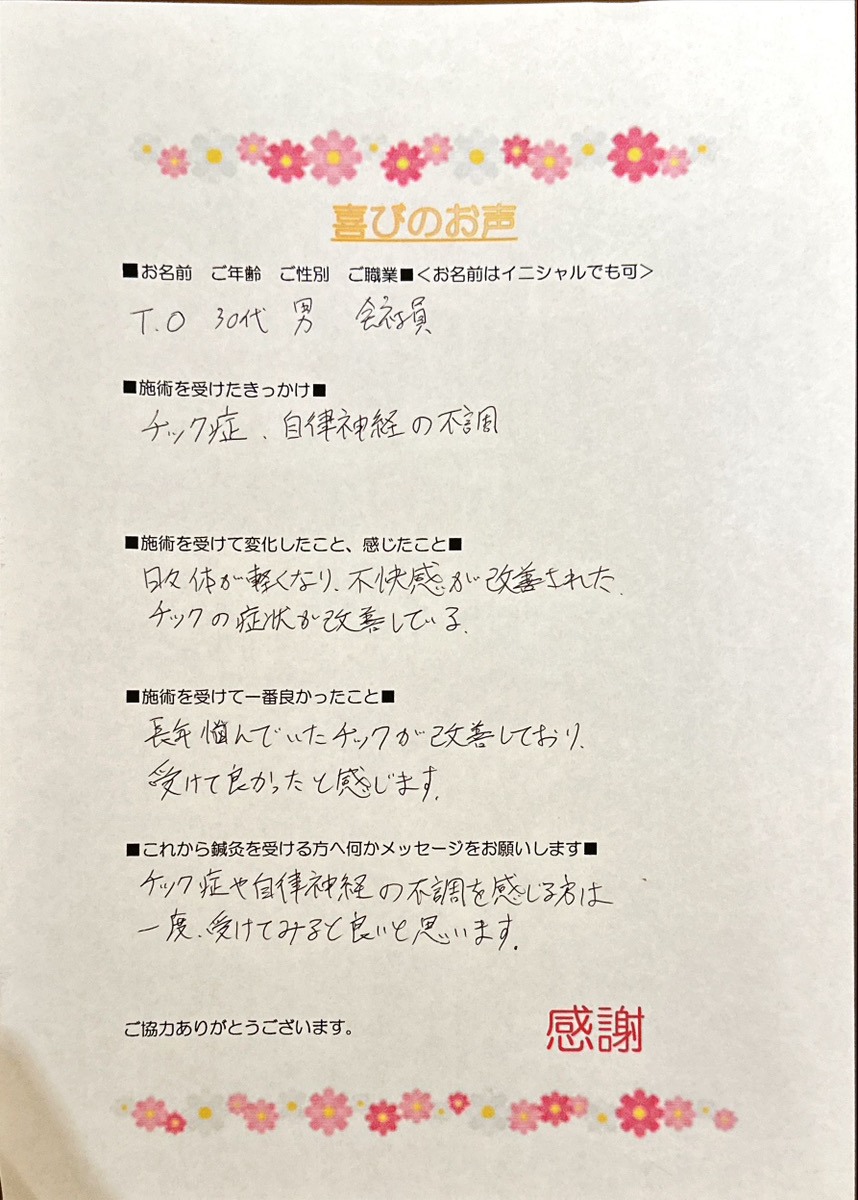 喜びのお声
■お名前　ご年齢　ご性別　ご職業■＜お名前はイニシャルでも可＞
T.O　30代　男　会社員
■施術を受けたきっかけ■
チック症、自律神経の不調
■施術を受けて変化したこと、感じたこと■
日々体が軽くなり、不快感が改善された。
チックの症状が改善している。
■施術を受けて一番良かったこと■
長年悩んでいたチックが改善しており、
受けて良かったと感じます。
■これから鍼灸を受ける方へ何かメッセージをお願いします■
チック症や自律神経の不調を感じる方は
一度、受けてみると良いと思います。
ご協力ありがとうございます。
感謝